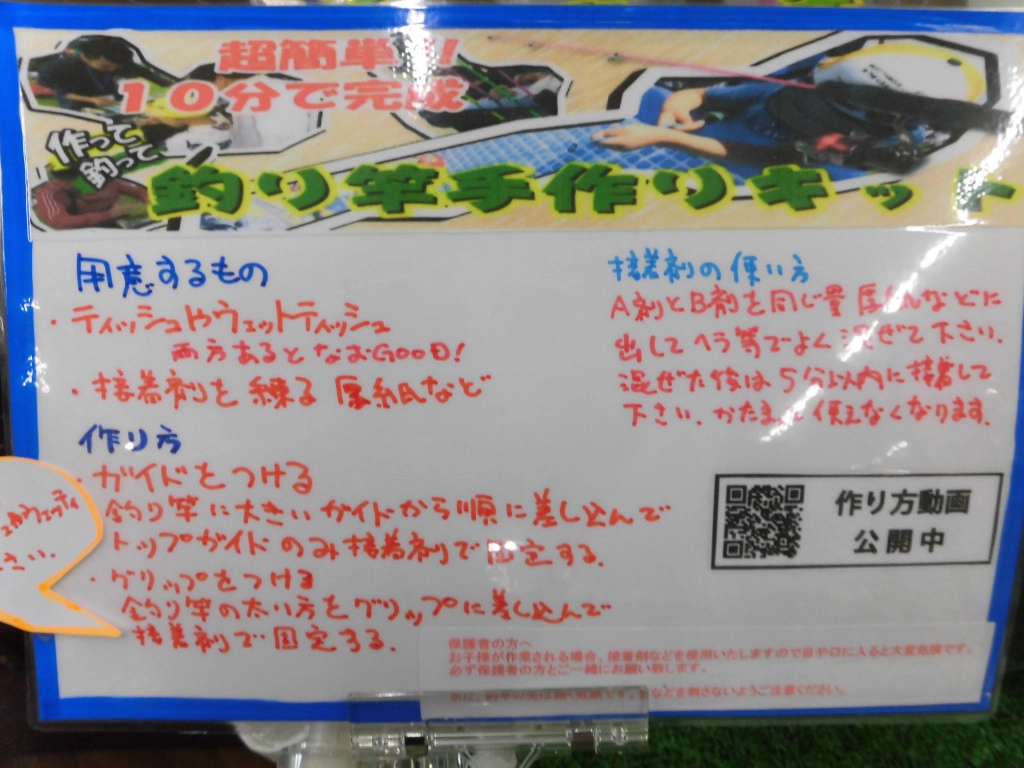 超簡単!!
10分で完成
作って
釣って
釣り竿手作りキット
用意するもの
・ティッシュやウェットティッシュ
両方あるとなおGOOD!
・接着剤を練る 厚紙など
作り方
・ガイドをつける
釣り竿に大きいガイドから順に差し込んで
トップガイドのみ接着剤で固定する.
・グリップをつける
釣り竿の太い方をグリップに差し込んで
接着剤で固定する.
接着剤の使い方
A剤とB剤を同じ量 厚紙などに
出してヘラ等でよく混ぜて下さい.
混ぜた後は5分以内に接着して
下さい.かたまると使えなくなります.
作り方動画
公開中
保護者の方へ
お子様が作業される場合、接着剤などを使用いたしますので目や口に入ると大変危険です。
必ず保護者の方とご一緒にお願い致します。
などを刺さないようご注意ください。
さい.